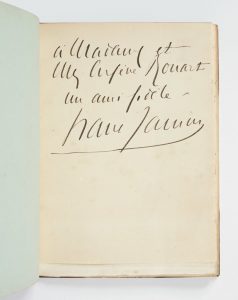 à Madame et
Mr Eugène Rouart
un ami fidèle -
Francis Jammes